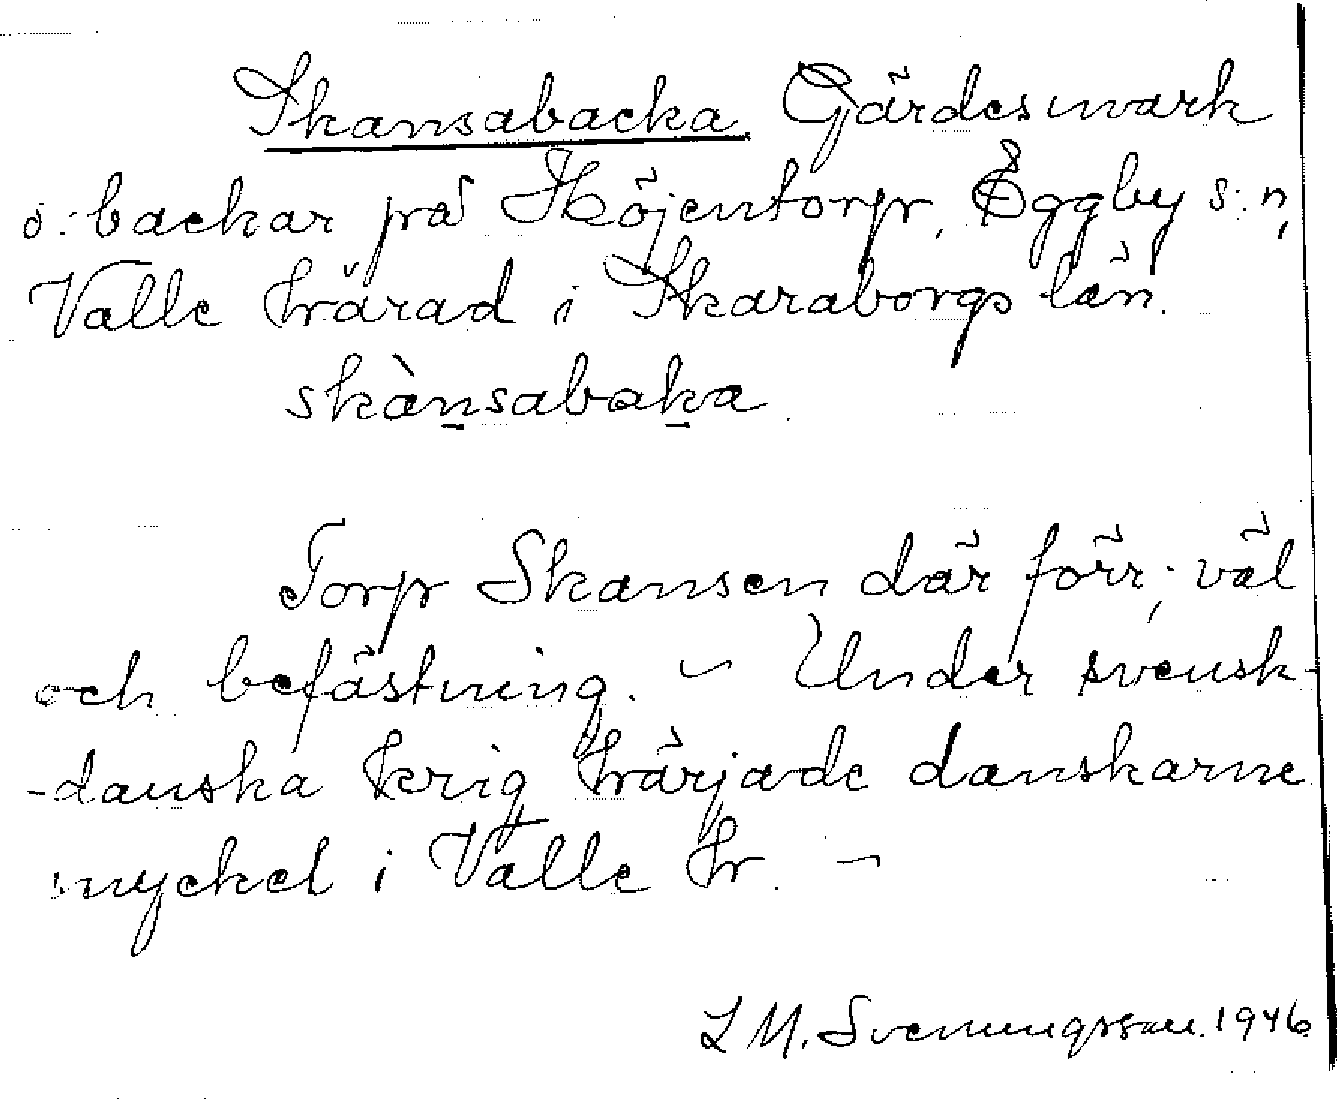 Skansabacka. Gärdesmark
o: backar på Höjentorp, Eggby s:n,
Valle härad i Skaraborgs län.
skànsabaka.
Torp Skansen där förr; väl
och befästning. – Under svensk-
-danska krig härjade danskarne
myckel i Valle hr. –
L M. Svenungsson. 1946